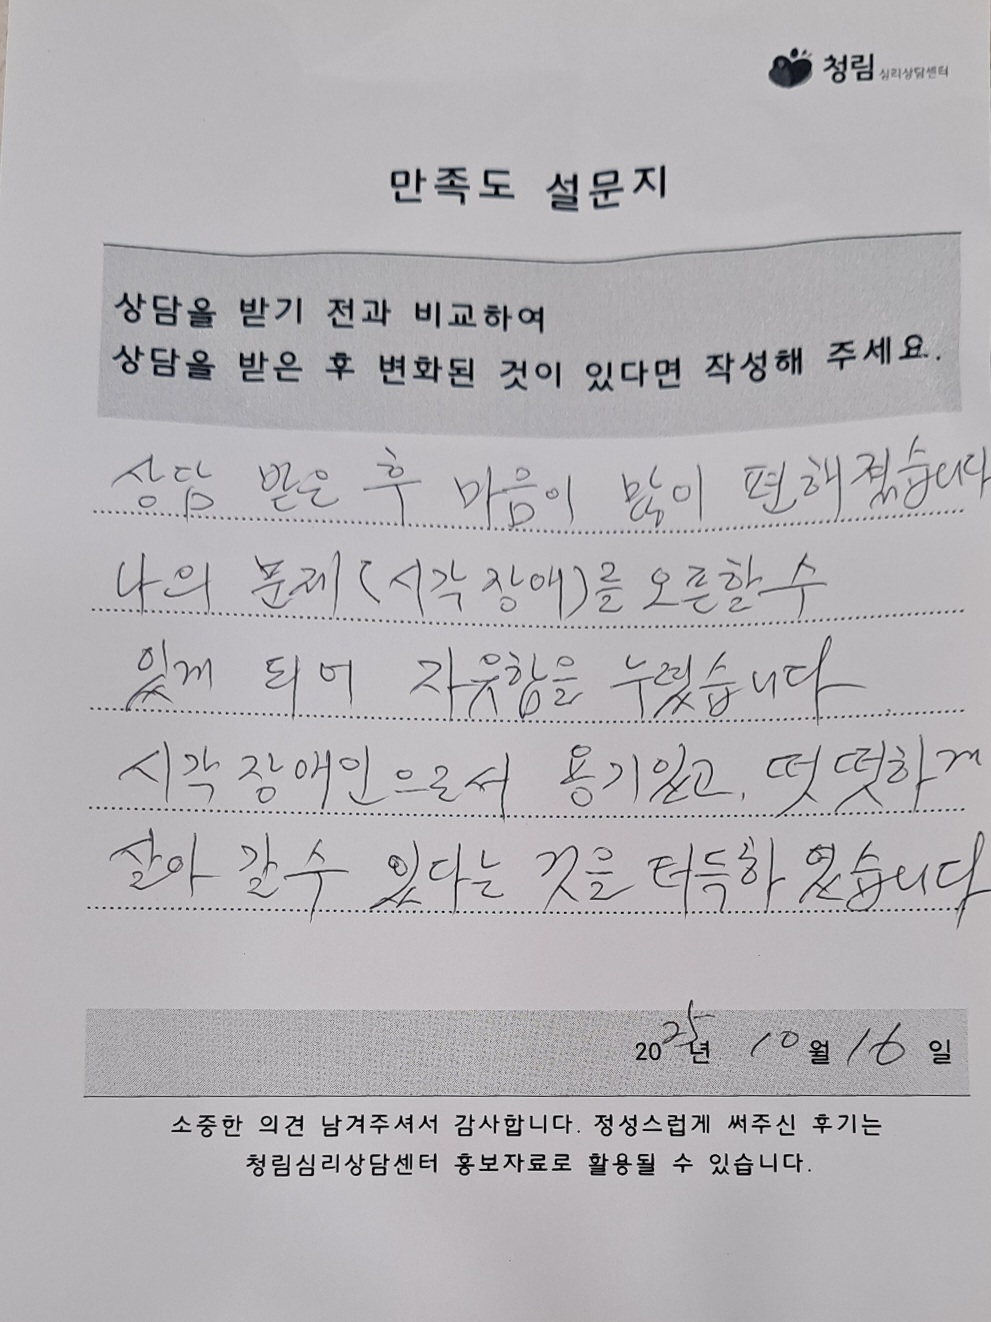 청림 심리상담센터
만족도 설문지
상담을 받기 전과 비교하여
상담을 받은 후 변화된 것이 있다면 작성해 주세요.
상담 받은 후 마음이 많이 편해졌습니다
나의 문제(시각장애)를 오픈할수
있게 되어 자유함을 누렸습니다
시각장애인으로서 용기있고, 떳떳하게
살아갈수 있다는 것을 터득하였습니다
2025년 10월 16일
소중한 의견 남겨주셔서 감사합니다. 정성스럽게 써주신 후기는
청림심리상담센터 홍보자료로 활용될 수 있습니다.